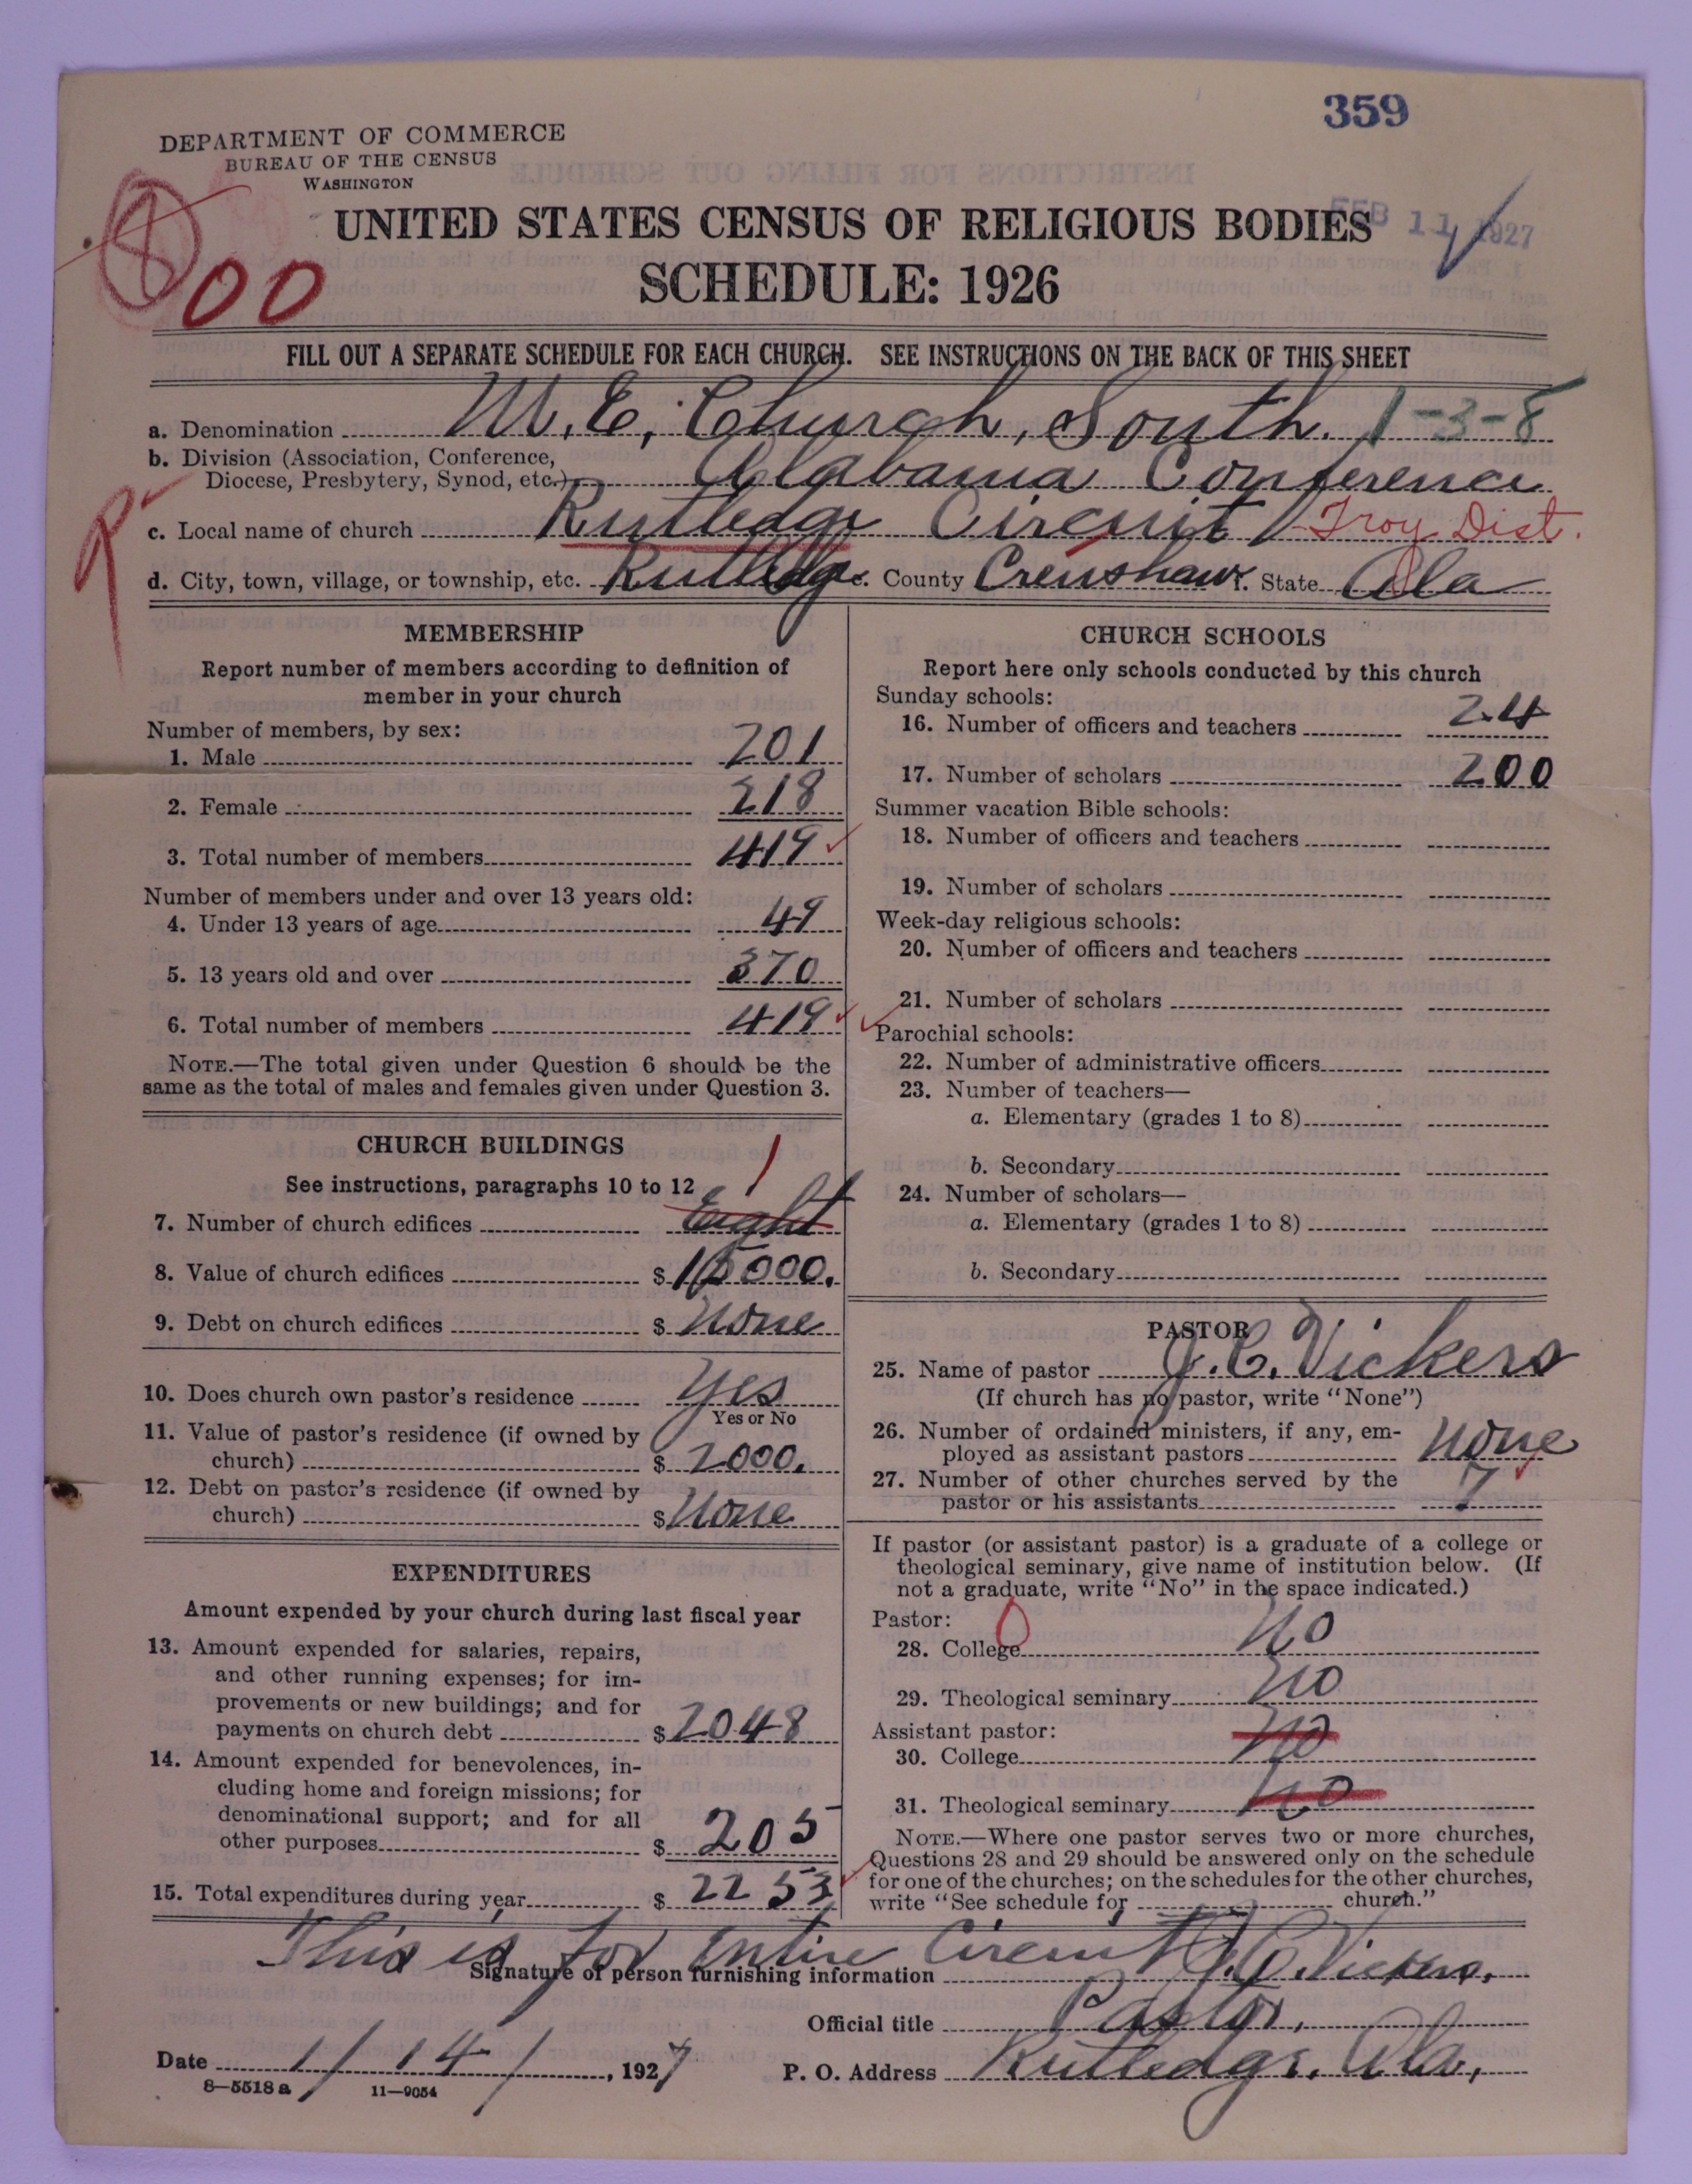 359
DEPARTMENT OF COMMERCE
BUREAU OF THE CENSUS
WASHINGTON
FEB 11 1927
UNITED STATES CENSUS OF RELIGIOUS BODIES
SCHEDULE: 1926
00
FILL OUT A SEPARATE SCHEDULE FOR EACH CHURCH. SEE INSTRUCTIONS ON THE BACK OF THIS SHEET
a. Denomination M. E. Church, South. 1-3-8
b. Division (Association, Conference,
Diocese, Presbytery, Synod, etc.) Alabama Conference
c. Local name of church Rutledge Circuit Troy Dist.
d. City, town, village, or township, etc. Rutledge e. County Crenshaw f. State Ala
MEMBERSHIP
Report number of members according to definition of
member in your church
Number of members, by sex:
1. Male 201
2. Female 218
3. Total number of members 419
Number of members under and over 13 years old:
4. Under 13 years of age 49
5. 13 years old and over 370
6. Total number of members 419
NOTE.—The total given under Question 6 should be the
same as the total of males and females given under Question 3.
CHURCH BUILDINGS
See instructions, paragraphs 10 to 12 1
7. Number of church edifices Eight
8. Value of church edifices $ 15000.
9. Debt on church edifices $ None
10. Does church own pastor's residence Yes
Yes or No
11. Value of pastor's residence (if owned by
church) $ 2000.
12. Debt on pastor's residence (if owned by
church) $ None
EXPENDITURES
Amount expended by your church during last fiscal year
13. Amount expended for salaries, repairs,
and other running expenses; for im-
provements or new buildings; and for
payments on church debt $ 2048
14. Amount expended for benevolences, in-
cluding home and foreign missions; for
denominational support; and for all
other purposes $ 205
15. Total expenditures during year $ 2253
CHURCH SCHOOLS
Report here only schools conducted by this church
Sunday schools:
16. Number of officers and teachers 24
17. Number of scholars 200
Summer vacation Bible schools:
18. Number of officers and teachers
19. Number of scholars
Week-day religious schools:
20. Number of officers and teachers
21. Number of scholars
Parochial schools:
22. Number of administrative officers
23. Number of teachers—
a. Elementary (grades 1 to 8)
b. Secondary
24. Number of scholars—
a. Elementary (grades 1 to 8)
b. Secondary
PASTOR
25. Name of pastor J. C. Vickers
(If church has no pastor, write "None")
26. Number of ordained ministers, if any, em-
ployed as assistant pastors None
27. Number of other churches served by the
pastor or his assistants 7
If pastor (or assistant pastor) is a graduate of a college or
theological seminary, give name of institution below. (If
not a graduate, write "No" in the space indicated.)
Pastor: 0
28. College No
29. Theological seminary No
Assistant pastor:
30. College No
31. Theological seminary No
NOTE.—Where one pastor serves two or more churches,
Questions 28 and 29 should be answered only on the schedule
for one of the churches; on the schedules for the other churches,
write "See schedule for church."
This is for Entire Circuit
Signature of person furnishing information J. C. Vickers.
Official title Pastor.
Date 1/14/, 1927 P. O. Address Rutledge, Ala,
8—5518 a 11—9054